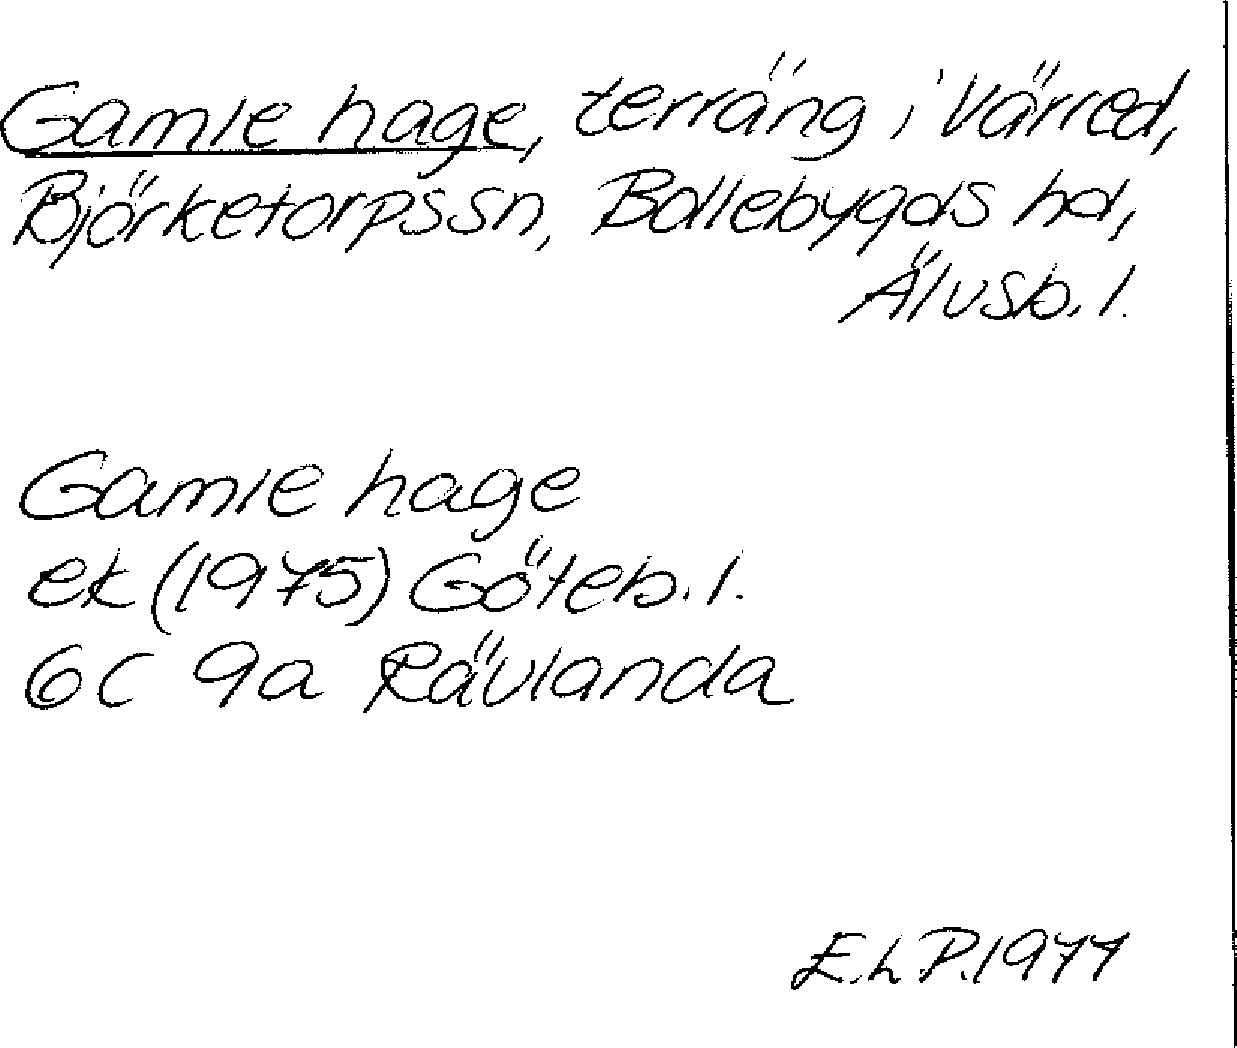 Gamle hage, terräng i Värred,
Björketorpssn, Bollebygds hd,
Älvsb. l.
Gamle hage
ek (1975) Göteb. l.
6C 9a Rävlanda
E.L P. 1977